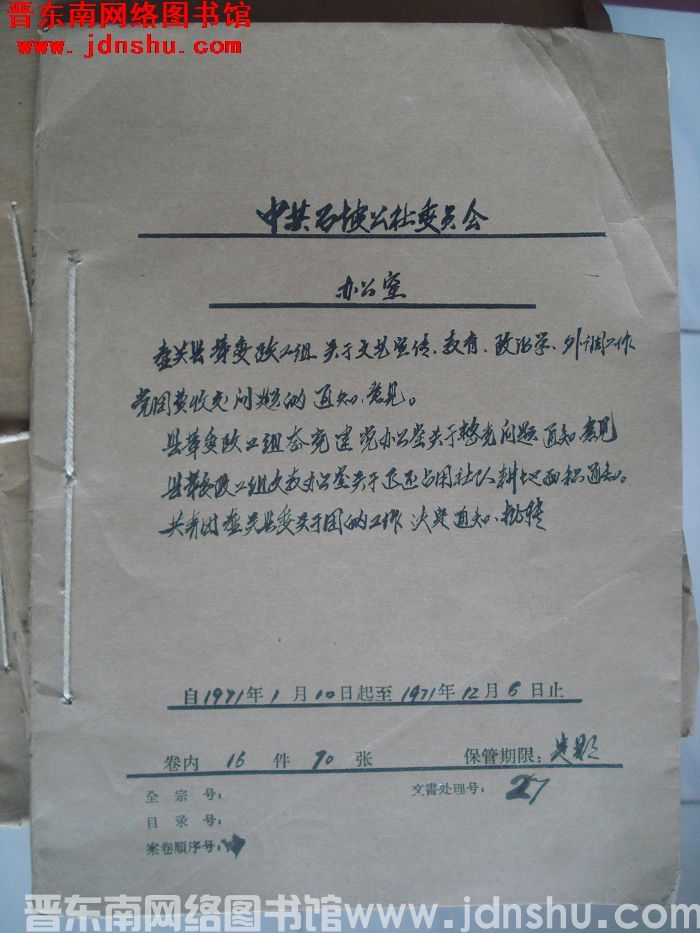 晋东南网络图书馆
www.jdnshu.com
中共石坡公社委员会
办公室
壶关县革委政工组关于文艺宣传、教育、政治学、外调工作
党团费收交问题的通知、意见。
县革委政工组整党建党办公室关于整党问题通知意见
县革委政工组文教办公室关于退还占用社队耕地面积通知。
共青团壶关县委关于团的工作决定通知、批转
自1971年1月10日起至1971年12月6日止
卷内 16 件 70 张 保管期限:
全宗号: 文書处理号: 27
目录号:
案卷顺序号:
晋东南网络图书馆 www.jdnshu.com